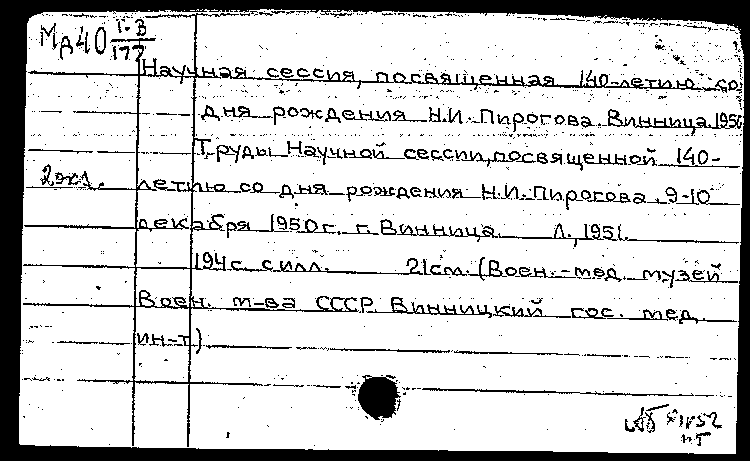 Мд40 1-В/172
Научная сессия, посвященная 140-летию со
дня рождения Н.И. Пирогова. Винница. 1950
Труды Научной сессии, посвященной 140-
2 экз. летию со дня рождения Н.И. Пирогова. 9-10
декабря 1950 г. г. Винница. Л., 1951.
194 с. с илл. 21 см. (Воен.-мед. музей
Воен. м-ва СССР. Винницкий гос. мед.
ин-т).